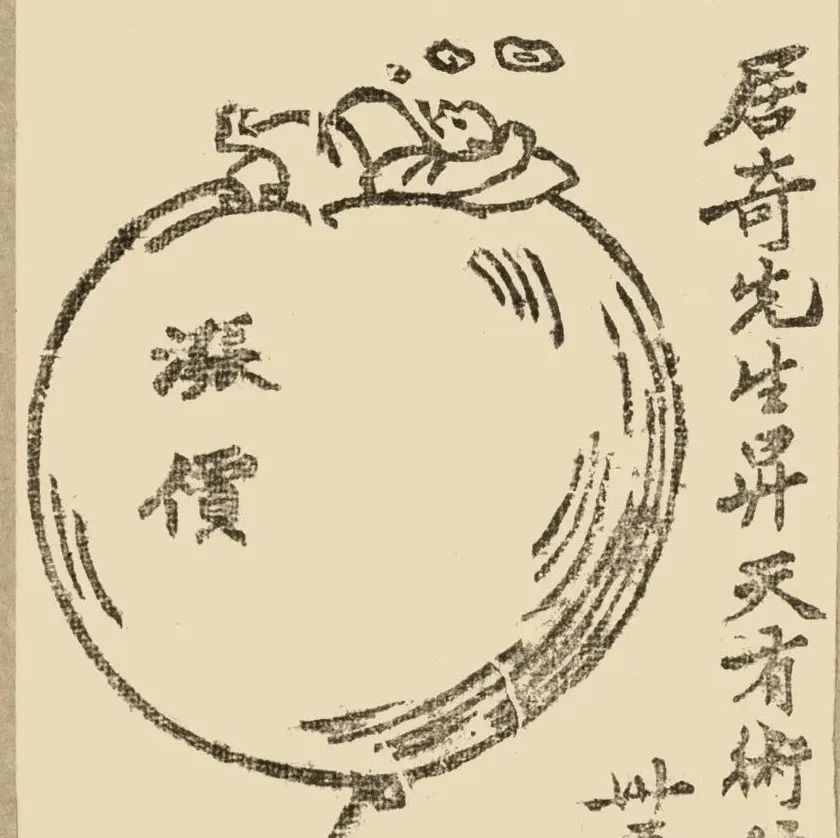 居奇先生昇天有術
漲價